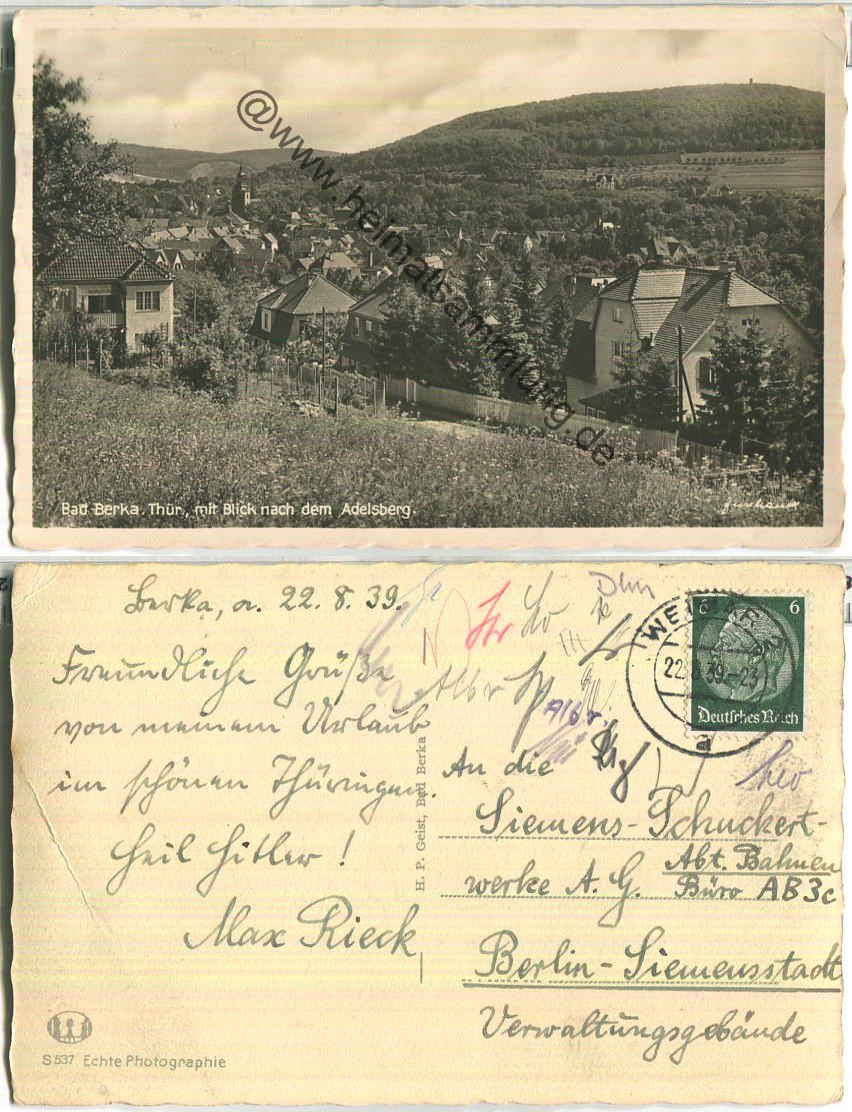 @www.heimatsammlung.de
Bad Berka. Thür., mit Blick nach dem Adelsberg.
Berka, a. 22. 8. 39.
Freundliche Grüße
von meinem Urlaub
im schönen Thüringen.
Heil Hitler!
Max Rieck
S 537 Echte Photographie
H. P. Geist, Bad Berka
Albr
Albr.
WEIMAR 2
22.8.39.-23
a
6
Deutsches Reich
An die
Siemens-Schuckert-
werke A. G.
Abt. Bahnen
Büro AB3c
Berlin-Siemensstadt
Verwaltungsgebäude